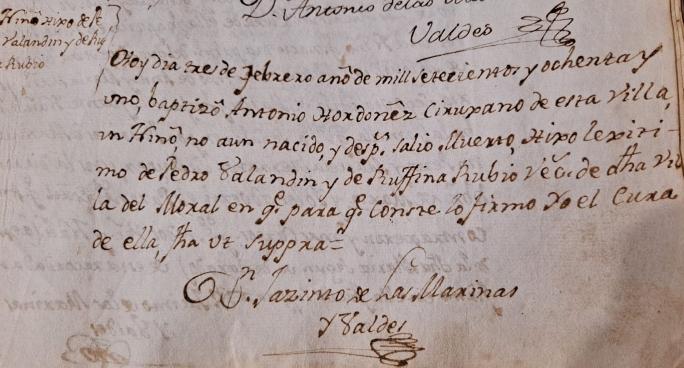 D. Antonio de las
Valdes
Hino Hixo de Pe
Valandin y de Ru
Rubio
Oy dia tres de Febrero año de mill setecientos y ochenta y
uno, baptizó Antonio Hordoñez Cirujano de esta Villa,
un Niño, no aun nacido, y desp.^s salio Muerto, Hixo lexiti-
mo de Pedro Valandin y de Ruffina Rubio Veç.^s de dha Vi
lla del Moral en q.^e para q.^e Conste lo firmo Yo el Cura
de ella fha ut suppra=
D.^n Jazinto de las Marinas
y Valdes